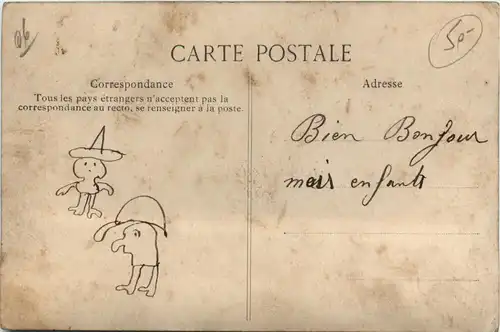 06
50-
CARTE POSTALE
Correspondance
Tous les pays étrangers n'acceptent pas la
correspondance au recto, se renseigner à la poste.
Adresse
Bien Bonjour
mes enfants